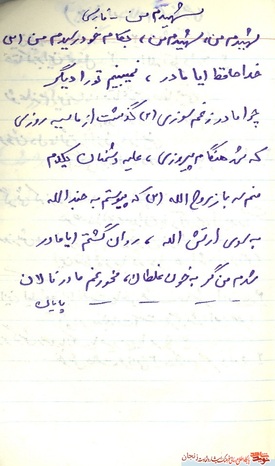 شهیدم من - فارسی
شهیدم من، شهیدم من، بکام خود رسیدم من
خداحافظ ایا مادر، نمیبینم تو را دیگر
چرا مادر ز غم سوزی گذشت از ما سیه روزی
که شد هنگام پیروزی، علیه دشمنان یکدم
منم سرباز روح الله که پیوستم به جند الله
به سوی ارتش الله، روان گشتم ایا مادر
شدم من گر به خون غلطان، مخور غم مادر نالان
پایان